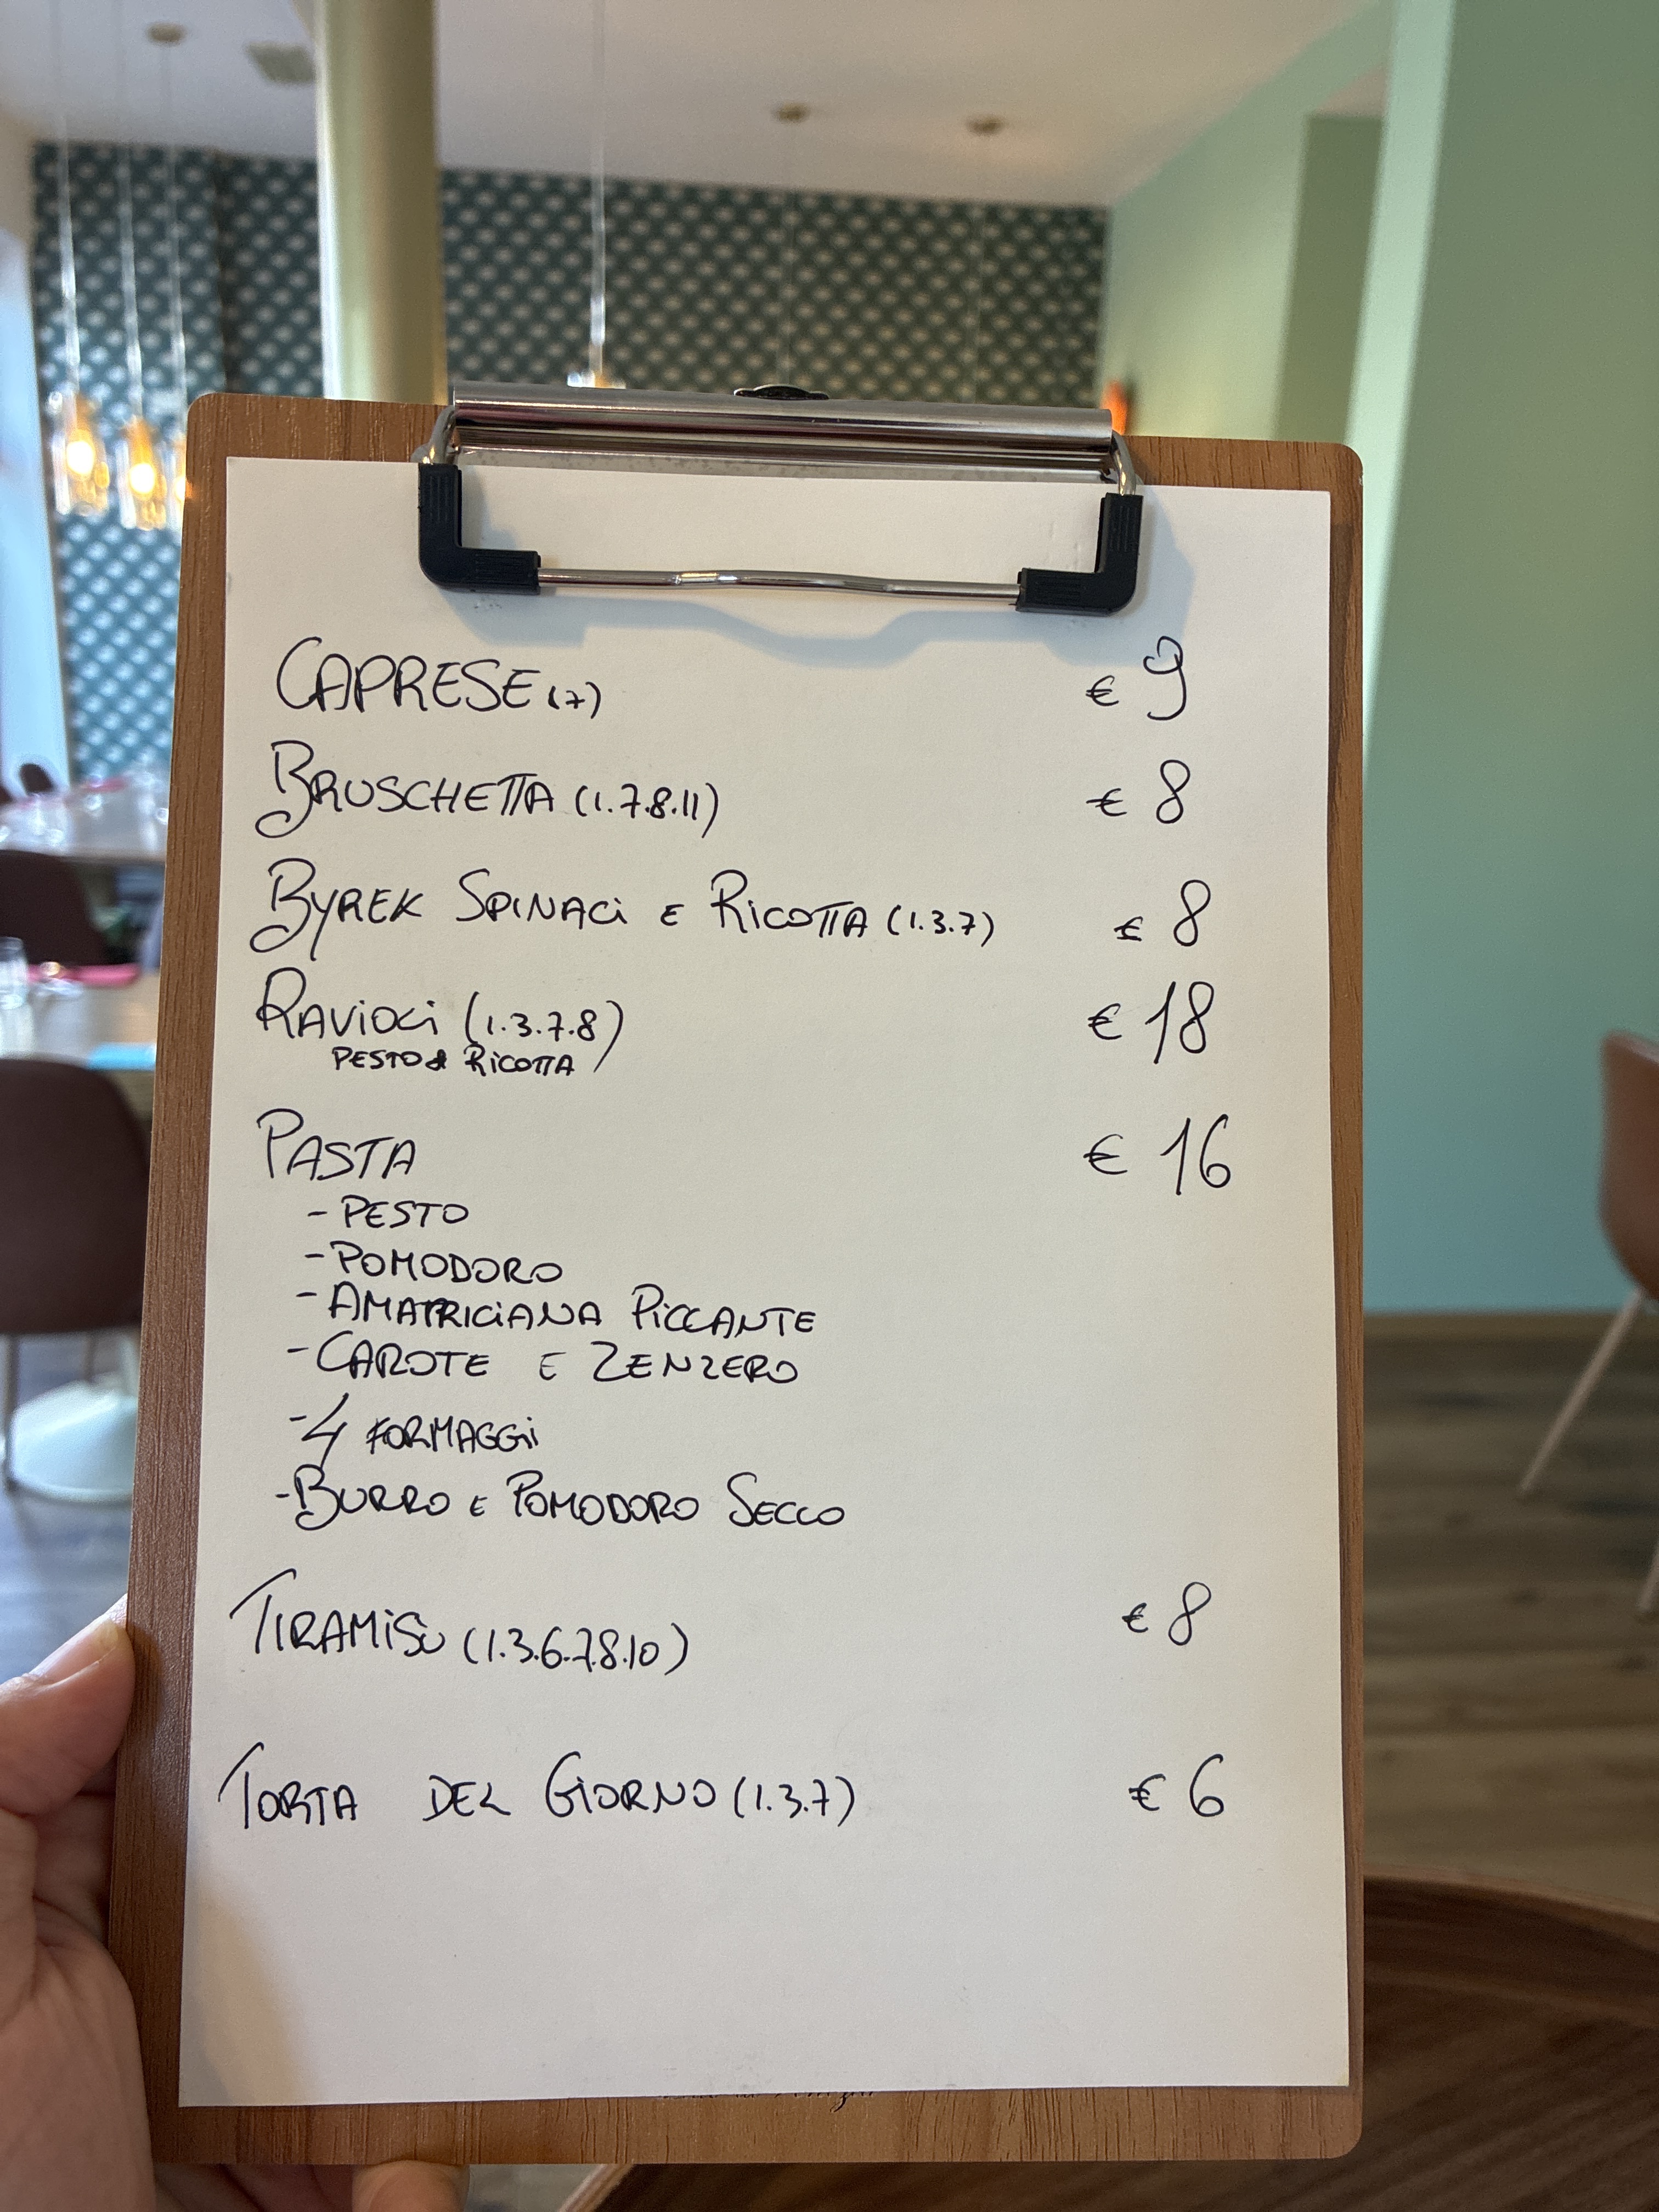 CAPRESE (7) € 9
BRUSCHETTA (1.7.8.11) € 8
BYREK SPINACI E RICOTTA (1.3.7) € 8
RAVIOLI (1.3.7.8) € 18
PESTO & RICOTTA
PASTA € 16
- PESTO
- POMODORO
- AMATRICIANA PICCANTE
- CAROTE E ZENZERO
- 4 FORMAGGI
- BURRO E POMODORO SECCO
TIRAMISÙ (1.3.6.7.8.10) € 8
TORTA DEL GIORNO (1.3.7) € 6